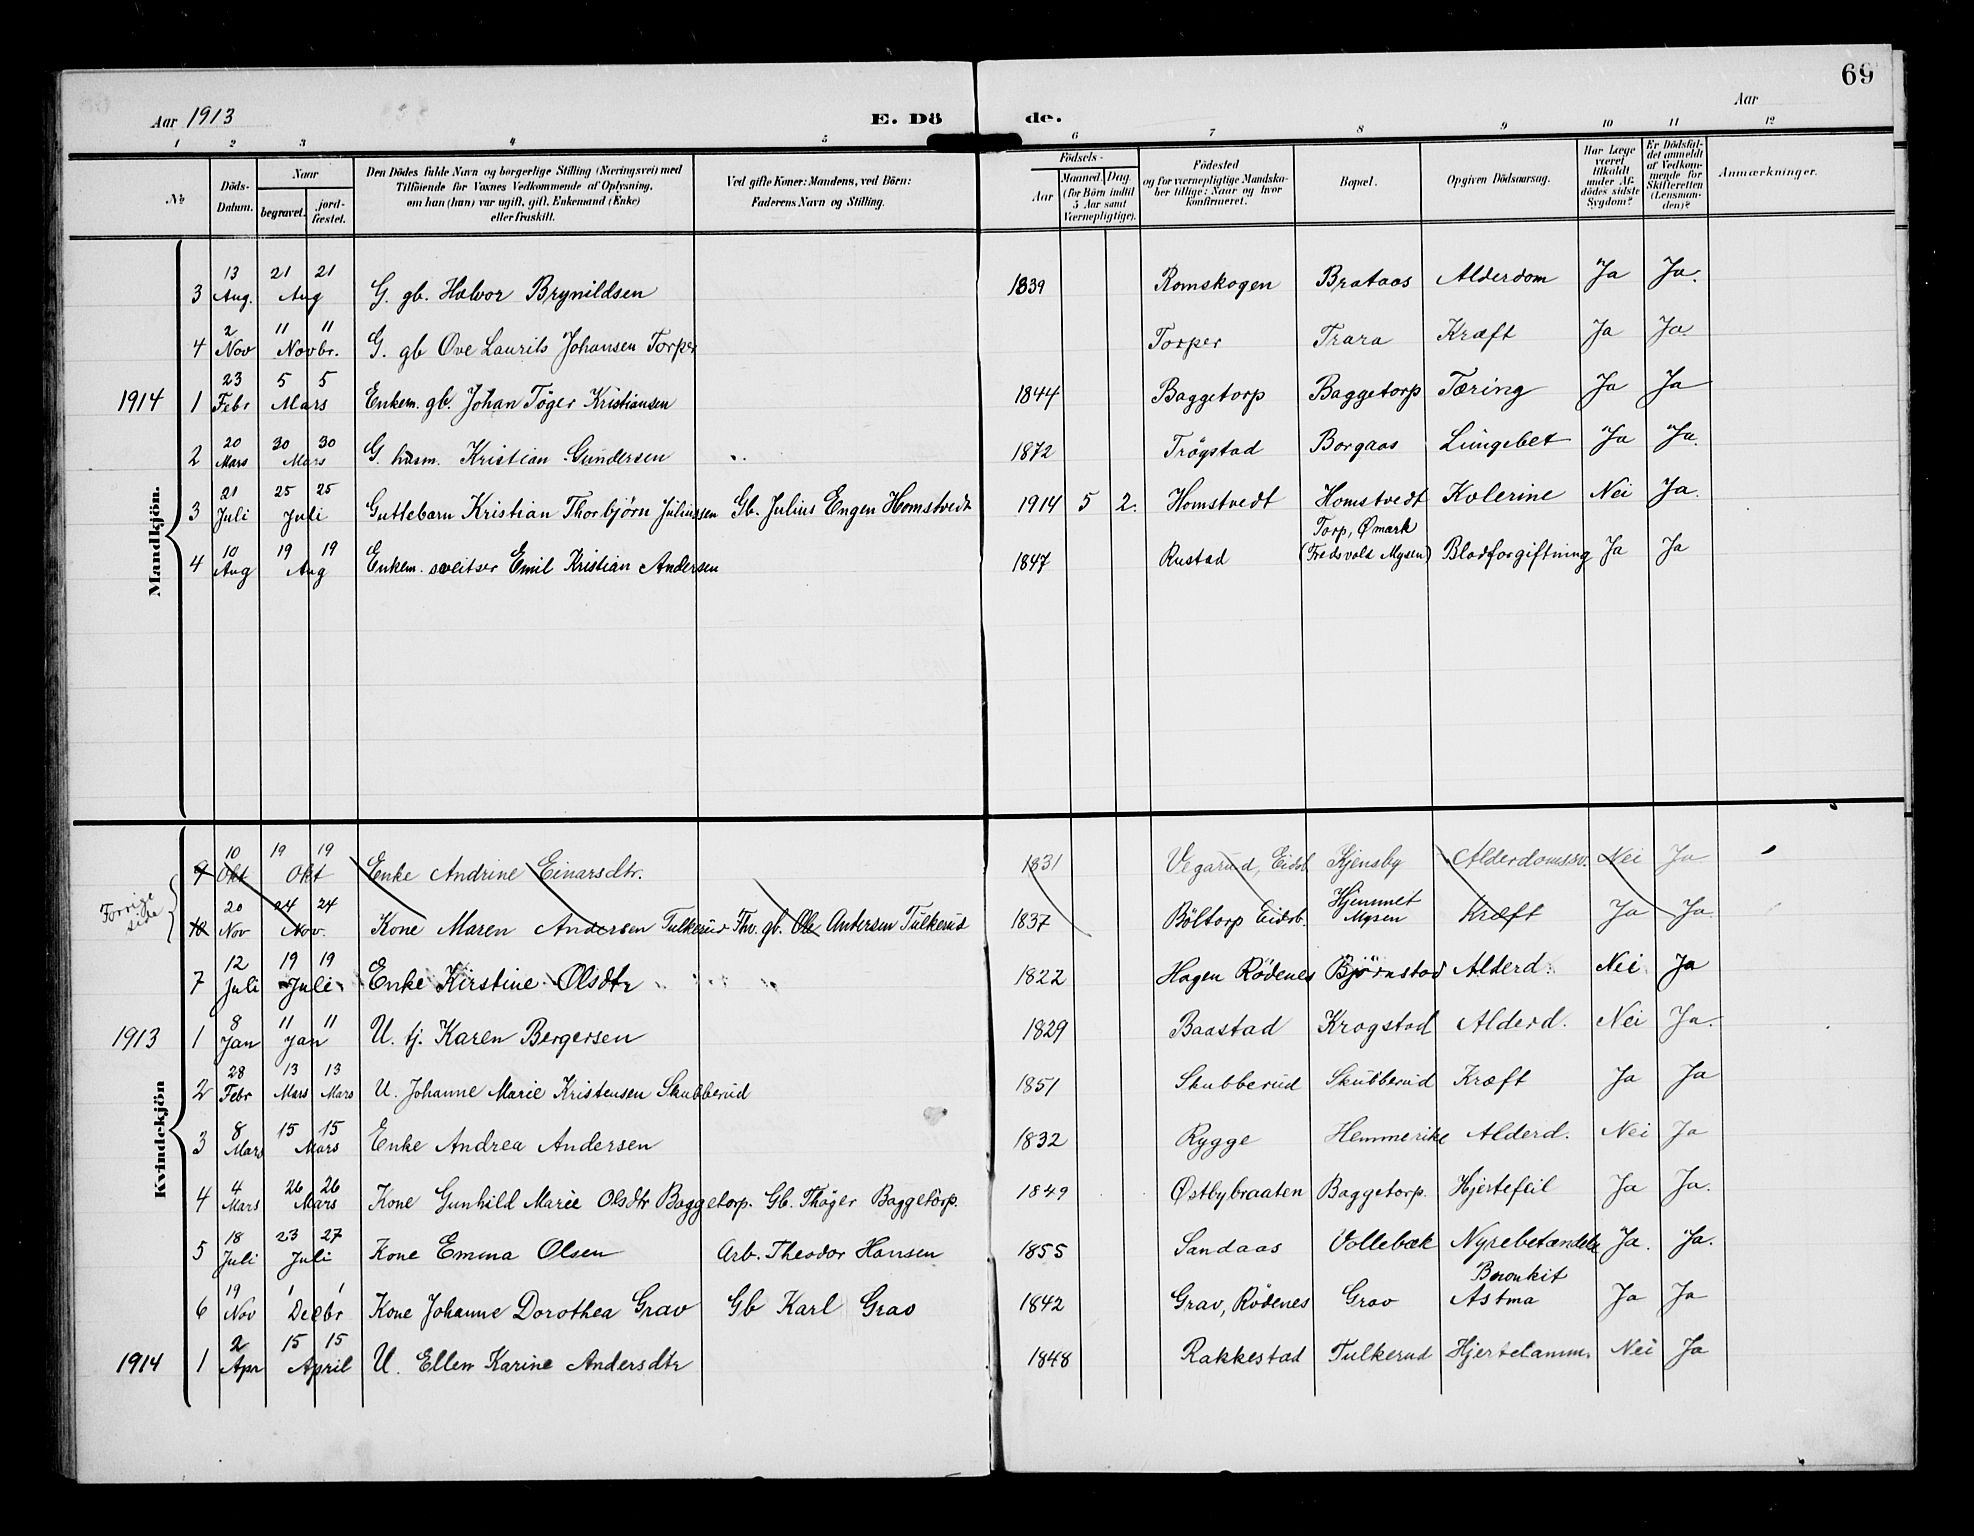 69
Aar 1913 E. Dö de. Aar
1 2 3 4 5 6 7 8 9 10 11 12
№ Döds-Datum. Naar begravet. jord-fæstet. Den Dödes fulde Navn og borgerlige Stilling (Næringsvei) med Tilföiende for Voxnes Vedkommende af Oplysning, om han (hun) var ugift, gift, Enkemand (Enke) eller fraskilt. Ved gifte Koner: Mandens, ved Börn: Faderens Navn og Stilling. Födsels- Aar Maaned. Dag. (for Börn indtil 5 Aar samt Værnepligtige). Födested og for værnepligtige Mandskaber tillige: Naar og hvor konfirmeret. Bopæl. Opgiven Dödsaarsag. Har Læge været tilkaldt under Afdödes sidste Sygdom? Er Dödsfaldet anmeldt af Vedkommende for Skifteretten (Lensmanden)? Anmærkninger.
Mandkjön.
3 13 Aug. 21 21 Aug G. gb. Halvor Brynildsen 1839 Romskogen Brataas Alderdom Ja Ja.
4 2 Nov 11 11 Novbr. G. gb Ove Laurits Johansen Torper Torper Trara Kræft Ja Ja.
1914 1 23 Febr 5 5 Mars Enkem. gb. Johan Töger Kristiansen 1844 Baggetorp Baggetorp Tæring Ja Ja
2 20 Mars 30 30 Mars G. husm. Kristian Gundersen 1872 Trøgstad Borgaas Lungebet Ja Ja.
3 21 Juli 25 25 Juli Guttebarn Kristian Thorbjørn Juliussen Gb. Julius Engen Homstvedt 1914 5 2. Homstvedt Homstvedt Kolerine Nei Ja.
4 10 Aug 19 19 Aug Enkem. sveitser Emil Kristian Andersen 1847 Rustad Torp, Ømark (Fredsvold Mysen) Blodforgiftning Ja Ja
Kvindekjön
Forrige side
9 10 Okt 19 19 Okt Enke Andrine Einarsdtr. 1831 Vegarud, Eidsb. Kjensby Alderdomssv. Nei Ja
10 20 Nov 24 24 Nov. Kone Maren Andersen Tulkerud Fhv. gb. Ole Andersen Tulkerud 1837 Böltorp Eidsb. Hjemmet Mysen Kræft Ja Ja.
7 12 Juli 19 19 Juli Enke Kirstine Olsdtr 1822 Hagen Rödenes Bjørnstad Alderd. Nei Ja
1913 1 8 Jan 11 11 Jan U. tj. Karen Bergersen 1829 Baastad Krogstad Alderd. Nei Ja.
2 28 Febr 13 13 Mars Mars U. Johanne Marie Kristensen Skubberud 1851 Skubberud Skubberud Kræft Ja Ja
3 8 Mars 15 15 Mars Enke Andrea Andersen 1832 Rygge Hemmerike Alderd. Nei Ja
4 4 Mars 26 26 Mars Kone Gunhild Marie Olsdtr Baggetorp. Gb. Thöger Baggetorp. 1849 Østbybraaten Baggetorp. Hjertefeil Ja Ja.
5 18 Juli 23 27 Juli Kone Emma Olsen Arb. Theodor Hansen 1855 Sandaas Vollebæk Nyrebetændelse Ja. Ja.
6 19 Nov 1 1 Decbr Kone Johanne Dorothea Grav Gb Karl Grav 1842 Grav, Rödenes Grav Bronkit Astma Ja Ja
1914 1 2 Apr 15 15 April U. Ellen Karine Andersdtr 1848 Rakkestad Tulkerud Hjertelamm. Nei Ja